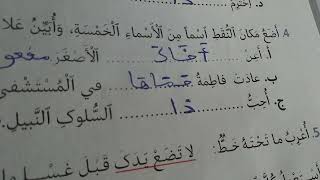 د. إختوم
4. أَضَعُ مَكانَ النُّقَطِ اَسْماً مِنَ الْأَسْماءِ الْخَمْسَةِ، وَأُبَيِّنُ عَلا
أ. أَعِنْ ....أخاكَ.... الْأَصْغَرَ مفعو
ب. عادَتْ فاطِمَةُ ....حماها.... في الْمُسْتَشْفى
ج. أُحِبُّ ....ذا.... السُّلوكِ النَّبيلِ.
5. أُعْرِبُ ما تَحْتَهُ خَطٌّ: لا تَضَعْ يَدَكَ قَبْلَ غَسْلِ